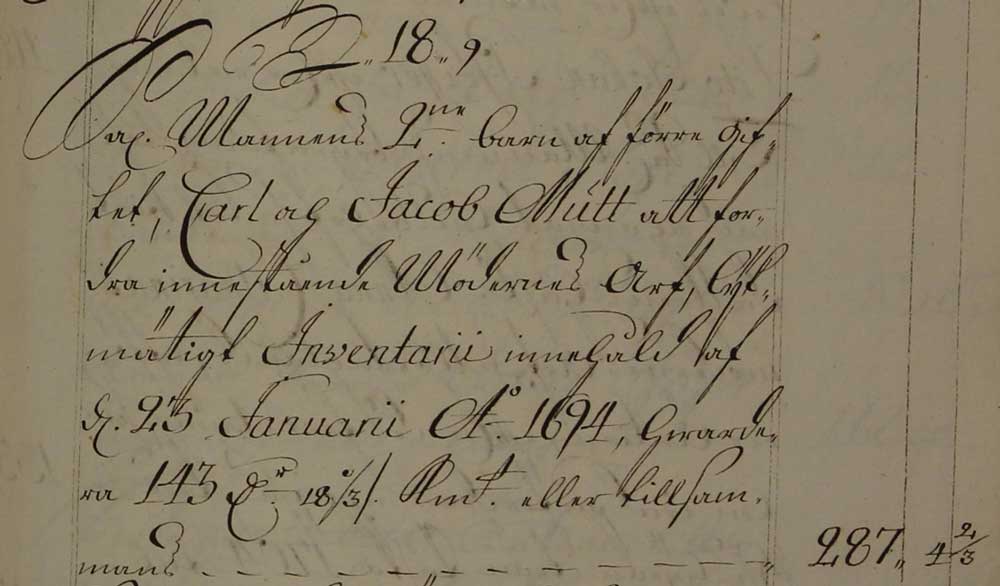 18 „ 9
Sal. Mannens 2ne barn af förre Gif„
tet, Carl och Jacob Mütt att for„
dra innestående Mödernes Arf, lijk„
mätigt Inventarii innehald af
d. 23 Januarii Ao 1694, hvardera
ra 143 Dr 18 2/3 /. Kmt. eller tillsam„
mans - - - „ - - - „ 287„ 4 2/3